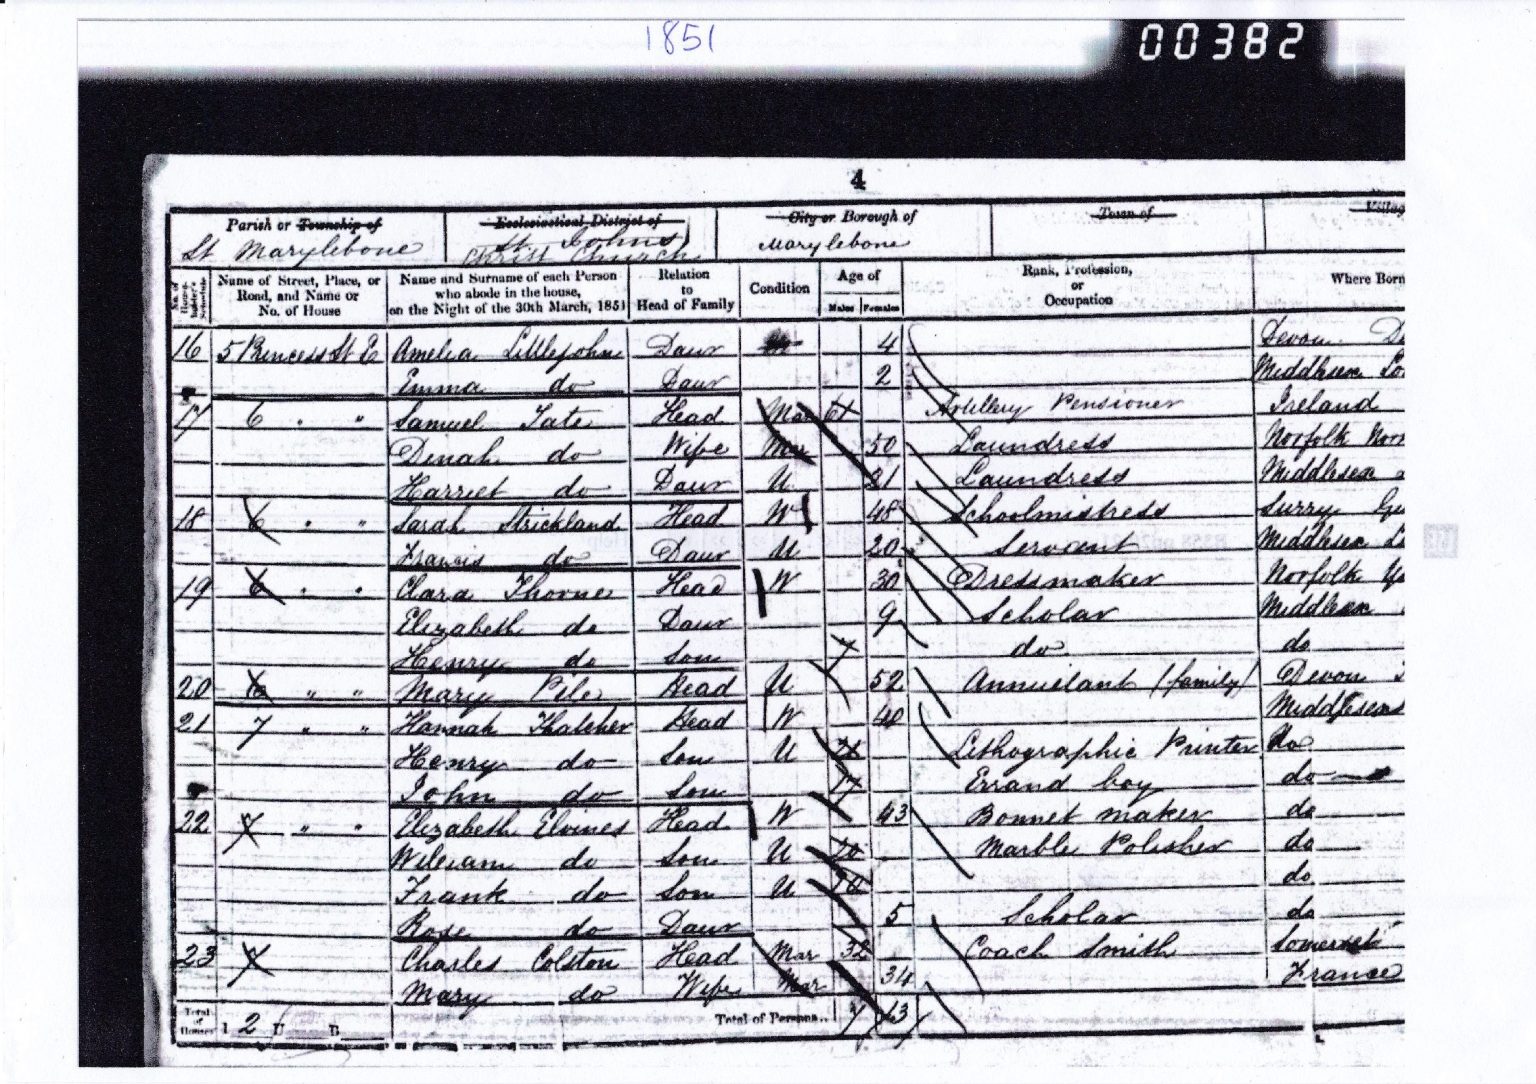 1851
00382
4
Parish or Township of
St Marylebone
Ecclesiastical District of
St Johns
Christ Church
City or Borough of
Marylebone
Town of
Villag
No. of House-holder's Schedule
Name of Street, Place, or Road, and Name or No. of House
Name and Surname of each Person who abode in the house, on the Night of the 30th March, 1851
Relation to Head of Family
Condition
Age of
Males Females
Rank, Profession, or Occupation
Where Born
16 5 Princess St Amelia Littlejohn Daur 4 Devon
Emma do Daur 2 Middlesex
17 6 " " Samuel Tate Head Mar 61 Artillery Pensioner Ireland
Dinah do Wife Mar 50 Laundress Norfolk
Harriet do Daur U 21 Laundress Middlesex
18 6 " " Sarah Strickland Head W 48 Schoolmistress Surry
Francis do Daur U 20 Servant Middlesex
19 6 " " Clara Thorne Head W 30 Dressmaker Norfolk
Elizabeth do Daur 9 Scholar Middlesex
Henry do Son 7 do do
20 6 " " Mary Pile Head U 52 Annuitant (family) Devon
21 7 " " Hannah Thatcher Head W 40 Middlesex
Henry do Son U 21 Lithographic Printer do
John do Son 17 Errand boy do
22 7 " " Elizabeth Elvines Head W 43 Bonnet maker do
William do Son U 20 Marble Polisher do
Frank do Son U 18 do
Rose do Daur 5 Scholar do
23 7 Charles Colston Head Mar 32 Coach Smith Somerset
Mary do Wife Mar 34 France
Total of Houses I 2 U B Total of Persons.. 7 13